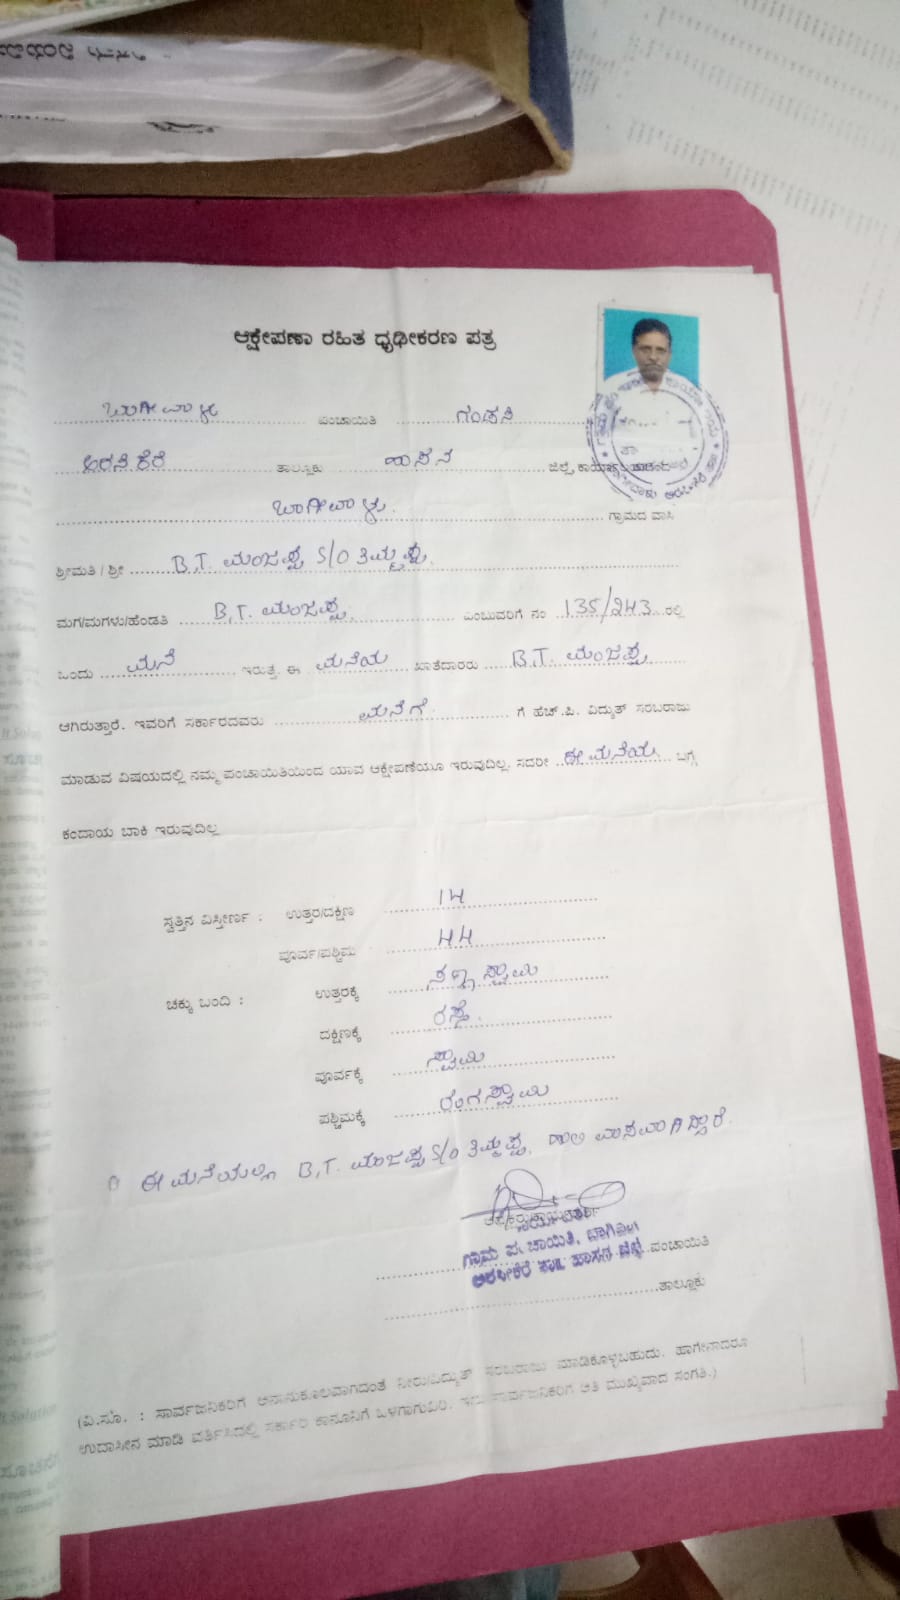 ಆಕ್ಷೇಪಣಾ ರಹಿತ ಧೃಢೀಕರಣ ಪತ್ರ
ಬಾಗೀವಾಳು ಪಂಚಾಯಿತಿ ಗಂಡಸಿ
ಅರಸಿಕೆರೆ ತಾಲ್ಲೂಕು ಹಾಸನ ಜಿಲ್ಲೆ, ಕಾರ್ಯಾಲಯ
ಬಾಗೀವಾಳು. ಗ್ರಾಮದ ವಾಸಿ
ಶ್ರೀಮತಿ / ಶ್ರೀ B.T. ಮಂಜಪ್ಪ S/O ತಿಮ್ಮಪ್ಪ.
ಮಗ/ಮಗಳು/ಹೆಂಡತಿ B.T. ಮಂಜಪ್ಪ. ಎಂಬುವರಿಗೆ ನಂ 135/243 ರಲ್ಲಿ
ಒಂದು ಮನೆ ಇರುತ್ತೆ. ಈ ಮನೆಯ ಖಾತೆದಾರರು B.T. ಮಂಜಪ್ಪ
ಆಗಿರುತ್ತಾರೆ. ಇವರಿಗೆ ಸರ್ಕಾರದವರು ಮನೆಗೆ ಗೆ ಹೆಚ್.ಪಿ. ವಿದ್ಯುತ್ ಸರಬರಾಜು
ಮಾಡುವ ವಿಷಯದಲ್ಲಿ ನಮ್ಮ ಪಂಚಾಯಿತಿಯಿಂದ ಯಾವ ಆಕ್ಷೇಪಣೆಯೂ ಇರುವುದಿಲ್ಲ. ಸದರೀ ಈ ಮನೆಯ ಬಗ್ಗೆ
ಕಂದಾಯ ಬಾಕಿ ಇರುವುದಿಲ್ಲ
ಸ್ವತ್ತಿನ ವಿಸ್ತೀರ್ಣ : ಉತ್ತರ/ದಕ್ಷಿಣ 14
ಪೂರ್ವ/ಪಶ್ಚಿಮ 44
ಚಕ್ಕು ಬಂದಿ : ಉತ್ತರಕ್ಕೆ ಸಣ್ಣಸ್ವಾಮಿ
ದಕ್ಷಿಣಕ್ಕೆ ರಸ್ತೆ.
ಪೂರ್ವಕ್ಕೆ ಸ್ವಾಮಿ
ಪಶ್ಚಿಮಕ್ಕೆ ರಂಗಸ್ವಾಮಿ
ಈ ಮನೆಯಲ್ಲಿ B.T. ಮಂಜಪ್ಪ S/O ತಿಮ್ಮಪ್ಪ. ಹಾಲಿ ವಾಸವಾಗಿದ್ದಾರೆ.
ಗ್ರಾಮ ಪಂಚಾಯಿತಿ, ಬಾಗಿವಾಳು ಪಂಚಾಯಿತಿ
ಅರಸೀಕೆರೆ ತಾ|| ಹಾಸನ ಜಿಲ್ಲೆ
ತಾಲ್ಲೂಕು
(ವಿ.ಸೂ. : ಸಾರ್ವಜನಿಕರಿಗೆ ಅನಾನುಕೂಲವಾಗದಂತೆ ನೀರು/ವಿದ್ಯುತ್ ಸರಬರಾಜು ಮಾಡಿಕೊಳ್ಳಬಹುದು. ಹಾಗೇನಾದರೂ
ಉದಾಸೀನ ಮಾಡಿ ವರ್ತಿಸಿದಲ್ಲಿ ಸರ್ಕಾರಿ ಕಾನೂನಿಗೆ ಒಳಗಾಗುವಿರಿ. ಇದು ಸಾರ್ವಜನಿಕರಿಗೆ ಅತಿ ಮುಖ್ಯವಾದ ಸಂಗತಿ.)